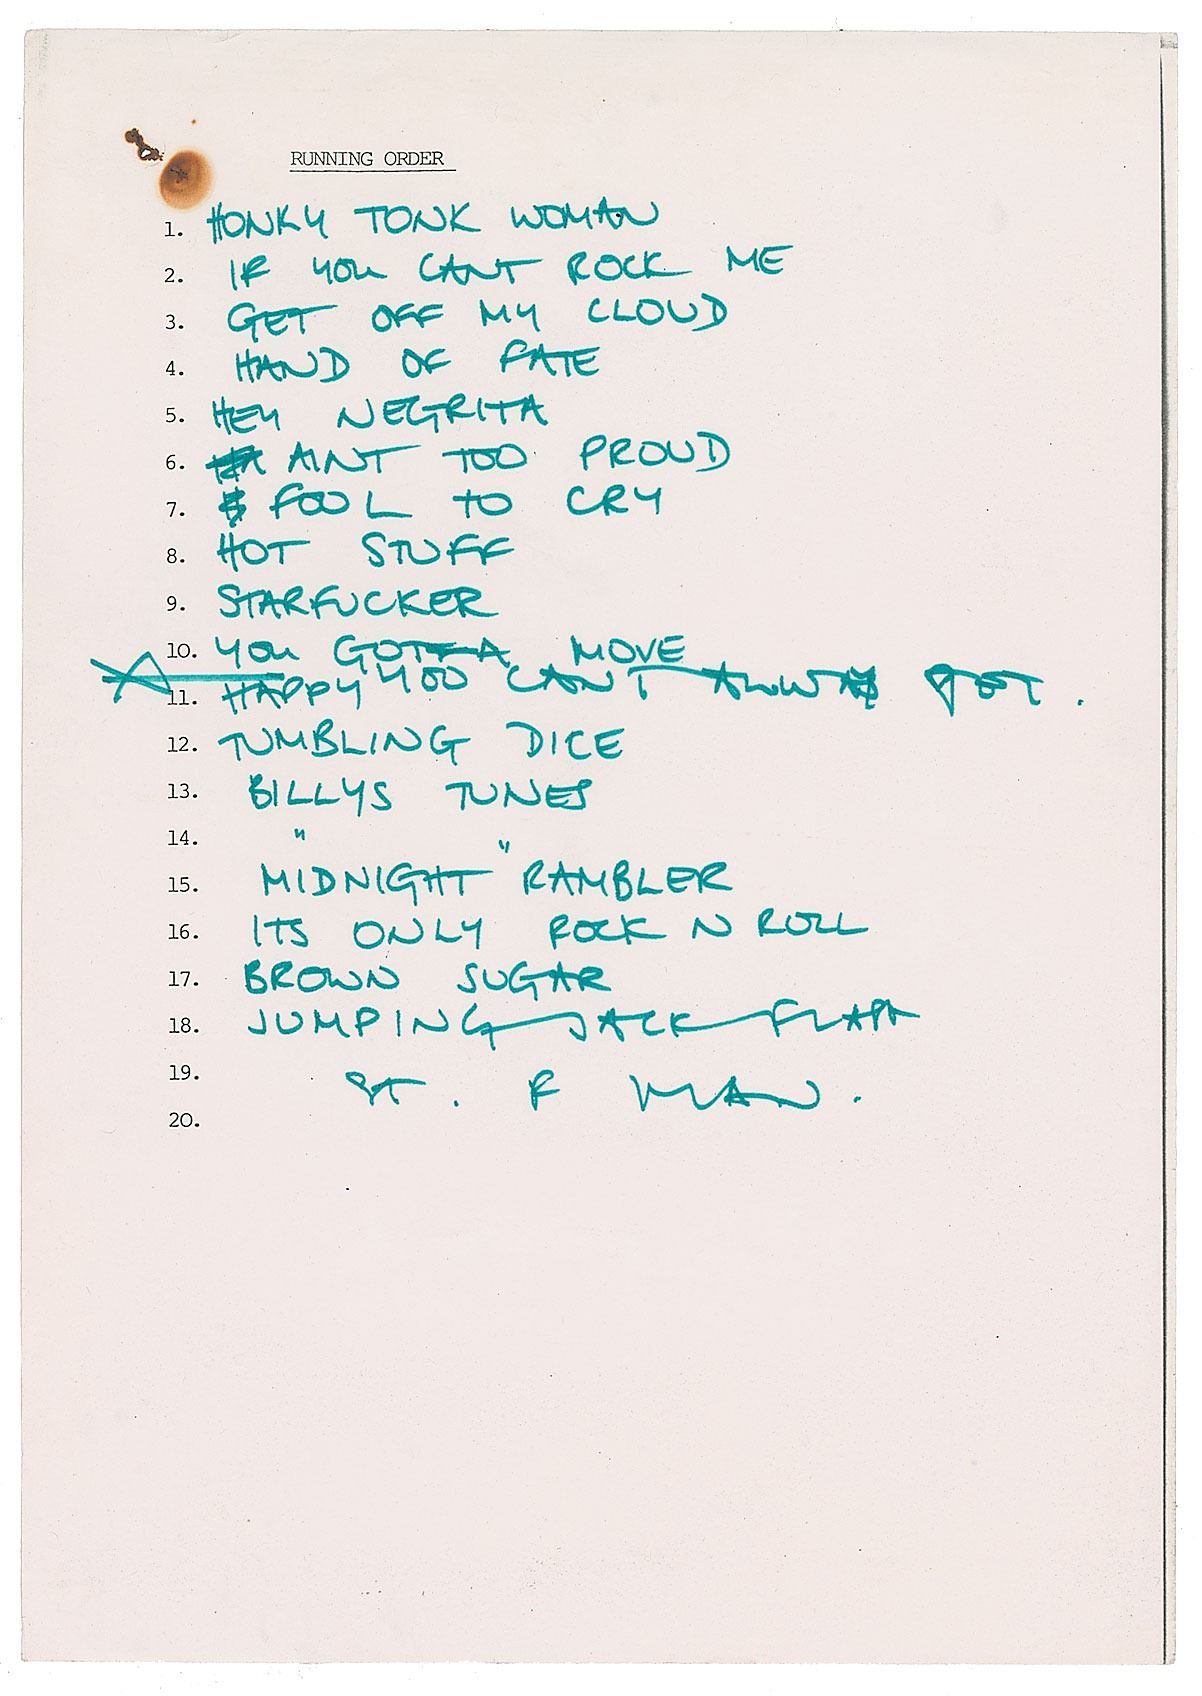 RUNNING ORDER
1. HONKY TONK WOMAN
2. IF YOU CANT ROCK ME
3. GET OFF MY CLOUD
4. HAND OF FATE
5. HEY NEGRITA
6. AINT TOO PROUD
7. FOOL TO CRY
8. HOT STUFF
9. STARFUCKER
10. YOU GOTTA MOVE
11. HAPPY YOU CANT ALWAYS GET .
12. TUMBLING DICE
13. BILLYS TUNES
14. " "
15. MIDNIGHT RAMBLER
16. ITS ONLY ROCK N ROLL
17. BROWN SUGAR
18. JUMPING JACK FLASH
19. ST. F MAN.
20.